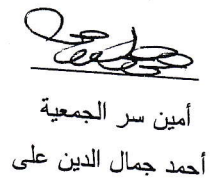 أمين سر الجمعية
أحمد جمال الدين على